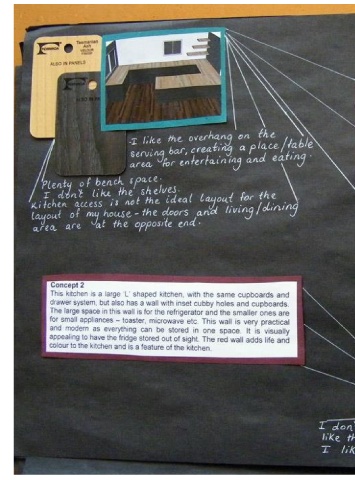 Tasmanian
Ash
ALSO IN PANELS
ALSO IN P
I like the overhang on the
serving bar, creating a place/table
area for entertaining and eating.
Plenty of bench space.
I don't like the shelves.
Kitchen access is not the ideal layout for the
layout of my house - the doors and living/dining
area are at the opposite end.
Concept 2
This kitchen is a large 'L' shaped kitchen, with the same cupboards and
drawer system, but also has a wall with inset cubby holes and cupboards.
The large space in this wall is for the refrigerator and the smaller ones are
for small appliances – toaster, microwave etc. This wall is very practical
and modern as everything can be stored in one space. It is visually
appealing to have the fridge stored out of sight. The red wall adds life and
colour to the kitchen and is a feature of the kitchen.
I don'
like th
I lik